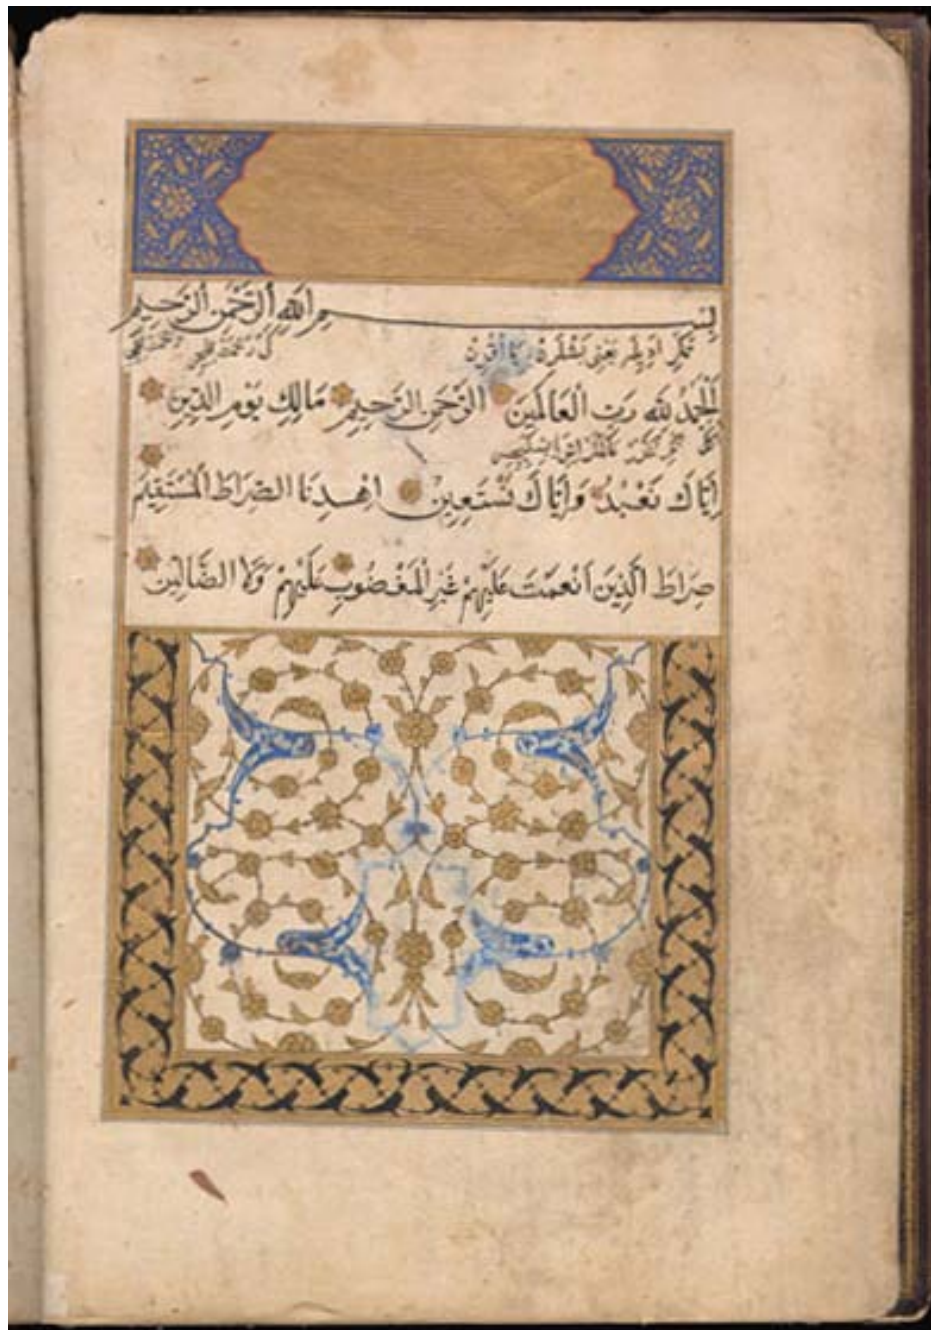 بِسْمِ اللهِ الرَّحْمٰنِ الرَّحِيمِ
اَلْحَمْدُ لِلّٰهِ رَبِّ الْعَالَمِينَ الرَّحْمٰنِ الرَّحِيمِ مَالِكِ يَوْمِ الدِّينِ
اِيَّاكَ نَعْبُدُ وَاِيَّاكَ نَسْتَعِينُ اِهْدِنَا الصِّرَاطَ الْمُسْتَقِيمَ
صِرَاطَ الَّذِينَ اَنْعَمْتَ عَلَيْهِمْ غَيْرِ الْمَغْضُوبِ عَلَيْهِمْ وَلَا الضَّالِّينَ